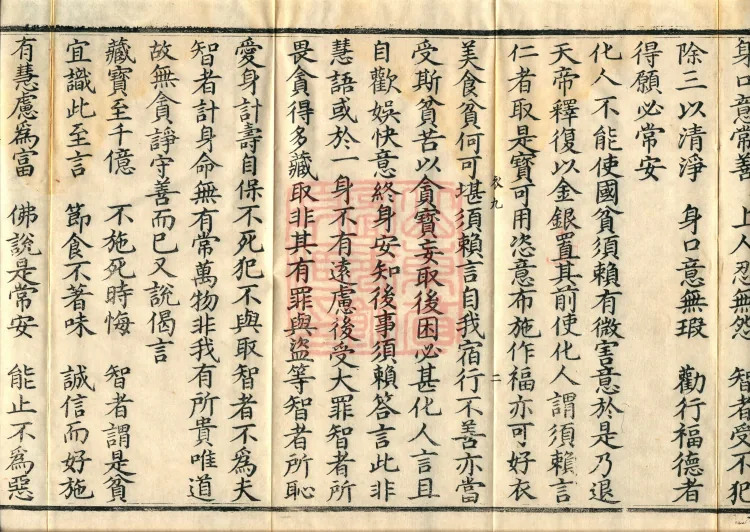 身口意常善　上人忍無怨　智者受不犯
除三以清淨　身口意無瑕　勸行福德者
得願必常安
化人不能使國貧須賴有微害意於是乃退
天帝釋復以金銀置其前使化人謂須賴言
仁者取是寶可用恣意布施作福亦可好衣
九　二
美食貧何可堪須賴言自我宿行不善亦當
受斯貧苦以貪寶妄取後困必甚化人言且
自歡娛快意終身安知後事須賴答言此非
慧語或於一身不有遠慮後受大罪智者所
畏貪得多藏取非其有罪與盜等智者所恥
愛身計壽自保不死犯不與取智者不為夫
智者計身命無有常萬物非我有所貴唯道
故無貪諍守善而已又說偈言
藏寶至千億　不施死時悔　智者謂是貧
宜識此至言　節食不著味　誠信而好施
有慧慮為富　佛說是常安　能止不為惡